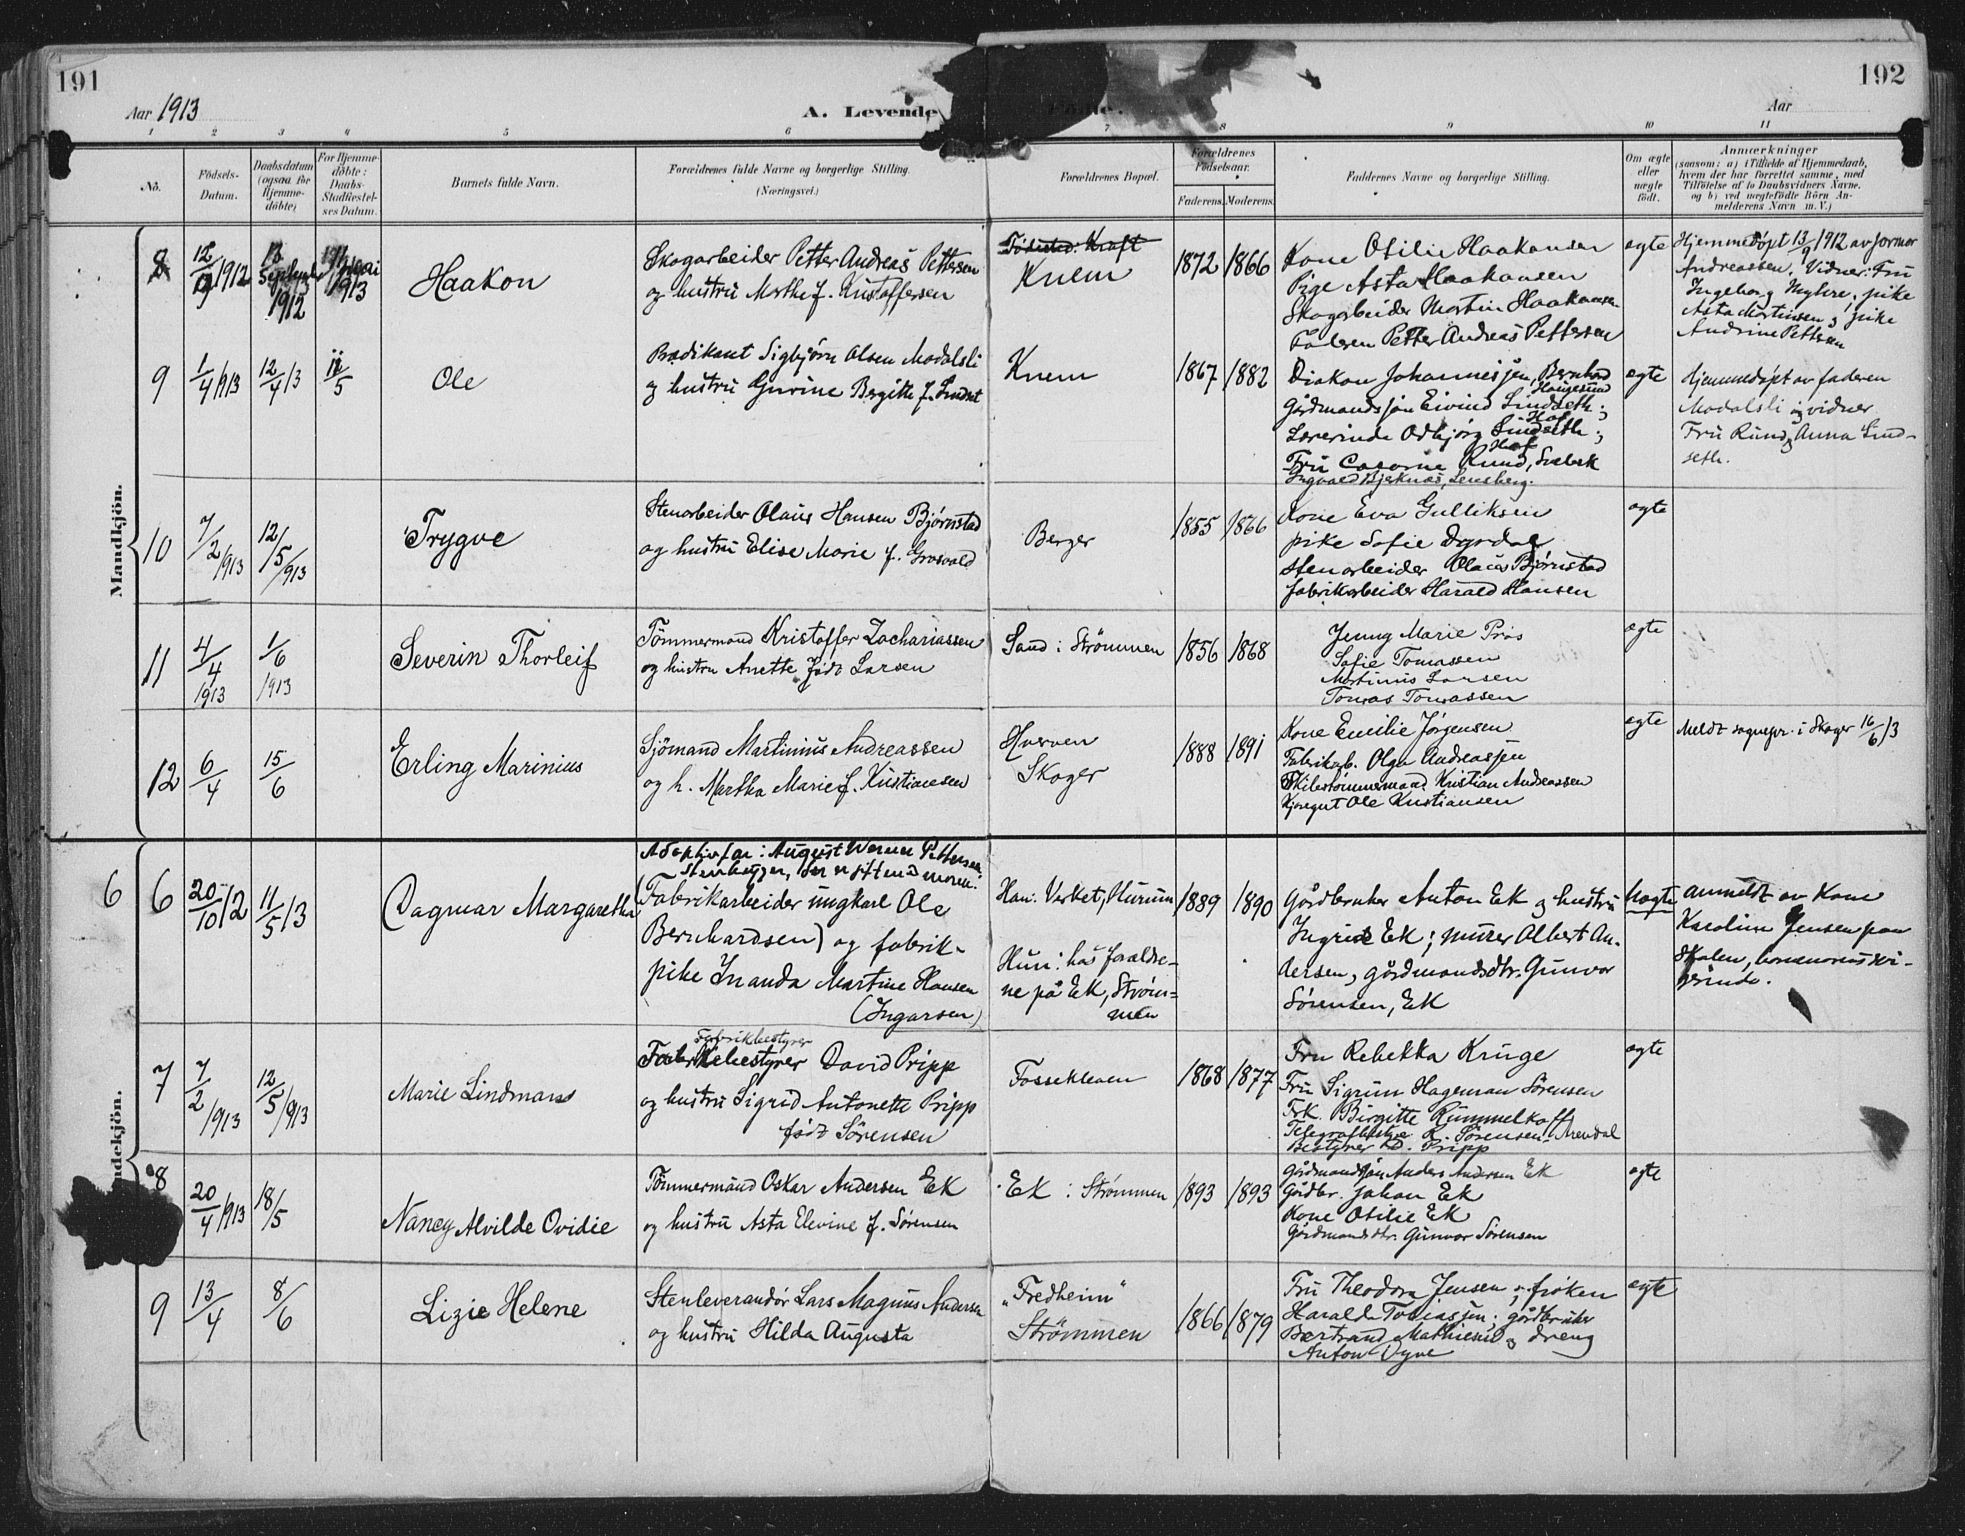 191
192
Aar 1913
A. Levende
Fødte.
Aar
1 2 3 4 5 6 7 8 9 10 11
No.
Födsels-
Datum.
Daabsdatum
(ogsaa for
Hjemme-
döbte)
For Hjemme-
döbte:
Daabs-
Stadfæstel-
ses Datum.
Barnets fulde Navn.
Forældrenes fulde Navne og borgerlige Stilling.
(Næringsvei.)
Forældrenes Bopæl.
Forældrenes
Födselsaar.
Faderens. Moderens.
Faddernes Navne og borgerlige Stilling.
Om ægte
eller
uægte
födt.
Anmærkninger
(saasom: a) i Tilfælde af Hjemmedaab,
hvem der har forrettet samme, med
Tilföielse af to Daabsvidners Navne,
og b) ved uegtefödte Börn An-
melderens Navn m. V.)
Mandkjön.
8
12/9 1912
13 September 1912
1913
Haakon
Skogarbeider Petter Andreas Pettersen
og hustru Marthe f. Kristoffersen
Födested: Kraft
Knem
1872 1866
Kone Otilie Haakansen
Pige Asta Haakansen
Skogarbeider Martin Haakansen
Faderen Petter Andreas Pettersen
ægte
Hjemmedöpt 13/9 1912 av jormor
Andreassen. Vidner: Fru
Ingeborg Myhre, pike
Asta Mortinsen og pike
Andrine Pettersen
9
1/4 1913
12/4 13
11/5
Ole
Prædikant Sigbjørn Olsen Modalsli
og hustru Gurine Bergitte f. Lindset
Knem
1867 1882
Diakon Johannesjen, Bernhard
Haugesund
Gårdmandsjøn Eivind Lindseth;
Hof
Lærerinde Odbjørg Lindseth;
Hof
Fru Casorine Rund, Svelvik
Ingvald Bjerknæs, Lensberg.
ægte
Hjemmedøpt av faderen
Modalsli og vidner
Fru Rund og Anna Lind-
seth.
10
7/2 1913
12/5 1913
Trygve
Stenarbeider Olaus Hansen Bjørnstad
og hustru Elise Marie f. Grosvold
Berger
1855 1866
Kone Eva Gulliksen
pike Sofie Dyrdal
Stenarbeider Olaus Bjørnstad
fabrikarbeider Harald Hansen
ægte
11
4/4 1913
1/6 1913
Severin Thorleif
Tömmermand Kristoffer Zachariassen
og hustru Anette född Larsen
Sand i Strömmen
1856 1868
Jenny Marie Præs
Sofie Tomassen
Martinius Larsen
Tomas Tomassen
ægte
12
6/4
15/6
Erling Marinius
Sjömand Martinius Andreassen
og h. Martha Marie f. Kristiansen
Hverven
Skoger
1888 1891
Kone Emilie Jörgensen
Fabrikarb. Olga Andreassen
Skibstömmermand Kristian Andreassen
Kjöregut Ole Kristiansen
ægte
Meldt sognepr. i Skoger 16/6 13
ndekjön.
6
6
20/10 12
11/5 13
Dagmar Margaretha
Adoptivfar: August Werner Pettersen
Stenhugger, der er gift med moren.
(Fabrikarbeider ungkarl Ole
Bernhardsen) og fabrik-
pike Inanda Martine Hansen
(Ingarsen)
Han: Verket, Hurum
Hun: hos forældre-
ne på Ek, Ström-
men
1889 1890
Gårdbruker Anton Ek og hustru
Ingrid Ek; murer Albert An-
dersen, gårdmandsdtr. Gunvor
Sörensen, Ek
Uægte
Anmeldt av Kone
Karoline Jensen paa
7
7/2 1913
12/5 1913
Marie Lindmans
Fabrikbestyrer
Fabrikbestyrer David Pripp
og hustru Sigrid Antonette Pripp
född Sörensen
Fossekleven
1868 1877
Fru Rebekka Kruge
Fru Sigrun Hageman Sörensen
Frk. Birgitte Rummelhoff
Telegrafbestyr R. Sörensen, Arendal
Bestyrer D. Pripp
ægte
8
20/4 1913
18/5
Nancy Alvilde Ovidie
Tömmermand Oskar Andersen Ek
og hustru Asta Elevine f. Sörensen
Ek i Strömmen
1893 1893
Gårdmandsjön Anders Andersen Ek
Gårdbr. Johan Ek
Kone Otilie Ek
Gårdmandsdtr. Gunvor Sörensen
ægte
9
13/4
8/6
Lizie Helene
Stenleverandör Lars Magnus Andersen
og hustru Hilda Augusta
"Fredheim"
Strömmen
1866 1879
Fru Theodora Jensen; fröken
Haralda Tobiassen; gårdbruker
Bertrand Mathiesen og dreng
Anton Dyve
ægte